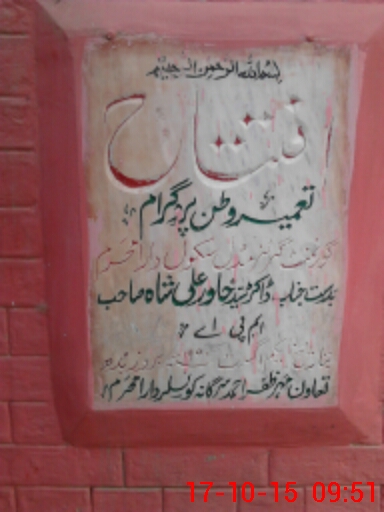 بسم اللہ الرحمن الرحیم
افتتاح
تعمیر وطن پروگرام
گورنمنٹ گرلز مڈل سکول دارا محرم
بدست جناب ڈاکٹر سید خاور علی شاہ صاحب
ایم پی اے
بروز
تعاون مہر ظفر احمد سرگانہ کونسلر دارا محرم
17-10-15 09:51